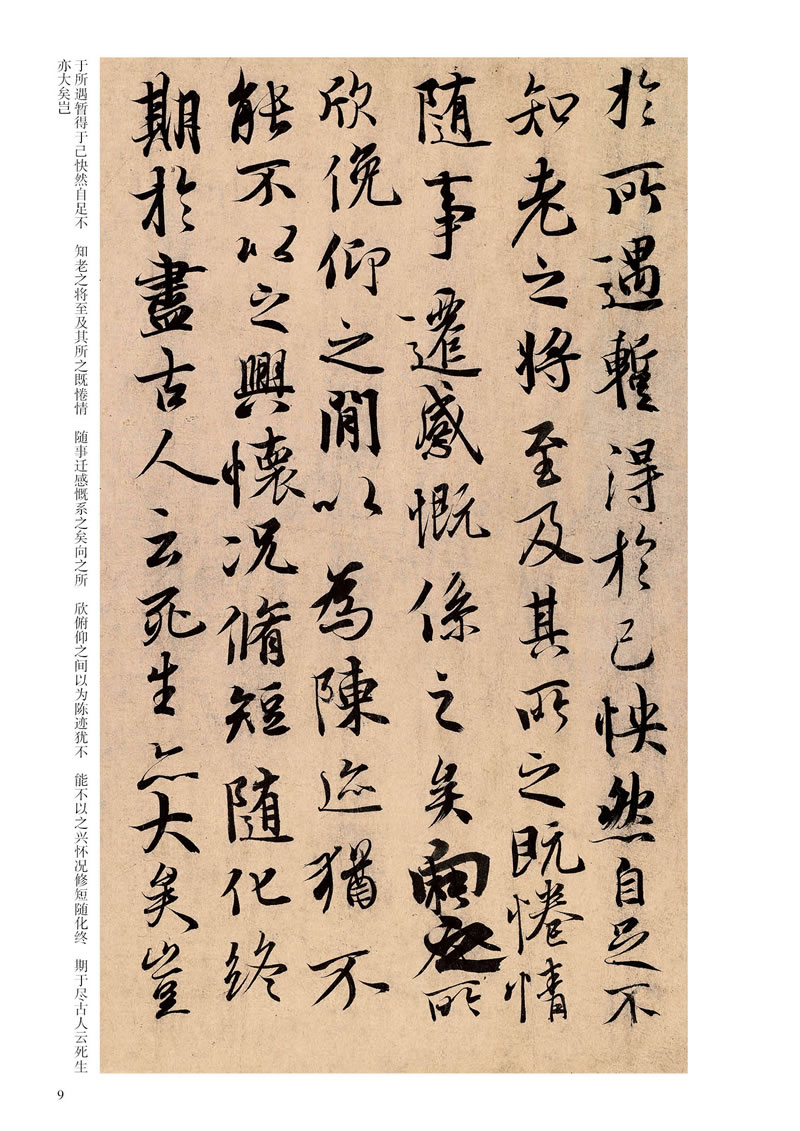 於所遇蹔得於己怏然自足不
知老之將至及其所之既惓情
隨事遷感慨係之矣向之所
欣俛仰之閒以為陳迹猶不
能不以之興懷況脩短隨化終
期於盡古人云死生亦大矣豈
于所遇暂得于己快然自足不 知老之将至及其所之既惓情 随事迁感慨系之矣向之所 欣俯仰之间以为陈迹犹不 能不以之兴怀况修短随化终 期于尽古人云死生
亦大矣岂
9